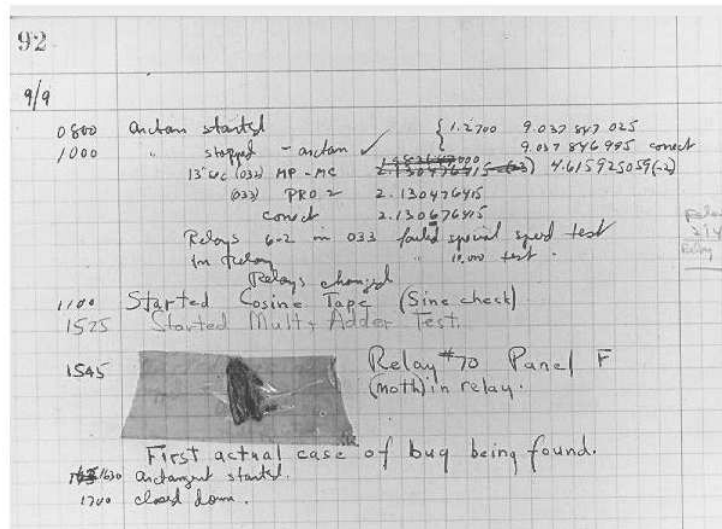 92
9/9
0800 arctan started { 1.2700 9.037 847 025
1000 " stopped - arctan ✓ 9.037 846 995 correct
13" uc (032) MP - MC 2.130476415 4.615925059(-2)
(033) PRO 2 2.130476415
correct 2.130676415
Relays 6-2 in 033 failed special speed test
in Relay " 10.000 test .
Relays changed
1100 Started Cosine Tape (Sine check)
1525 Started Mult + Adder Test.
1545 Relay #70 Panel F
(moth) in relay.
First actual case of bug being found.
1630 arctangent started.
1700 closed down .